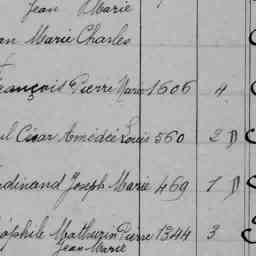 Jean Marie
an Marie Charles
ançois Pierre Marie 1606 4
ul César Amédée Louis 560 2 D
dinand Joseph Marie 469 1 D
éophile Mathurin Pierre 1344 3
Jean Marie